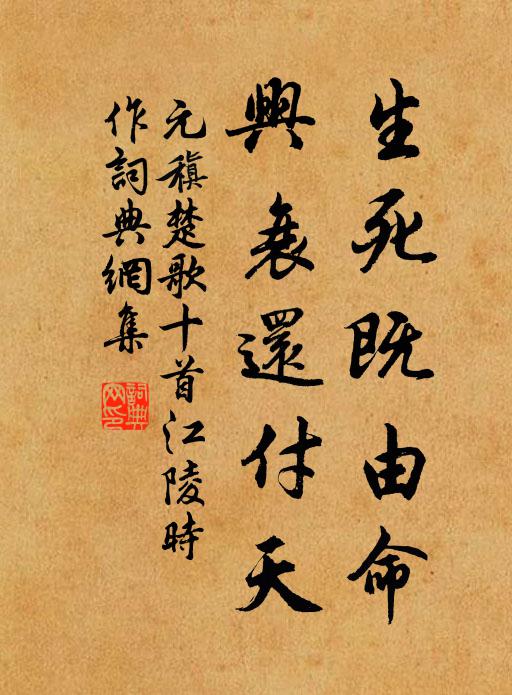 生死既由命
興衰還付天
元稹楚歌十首江陵時
作詞典網集
詞典网印